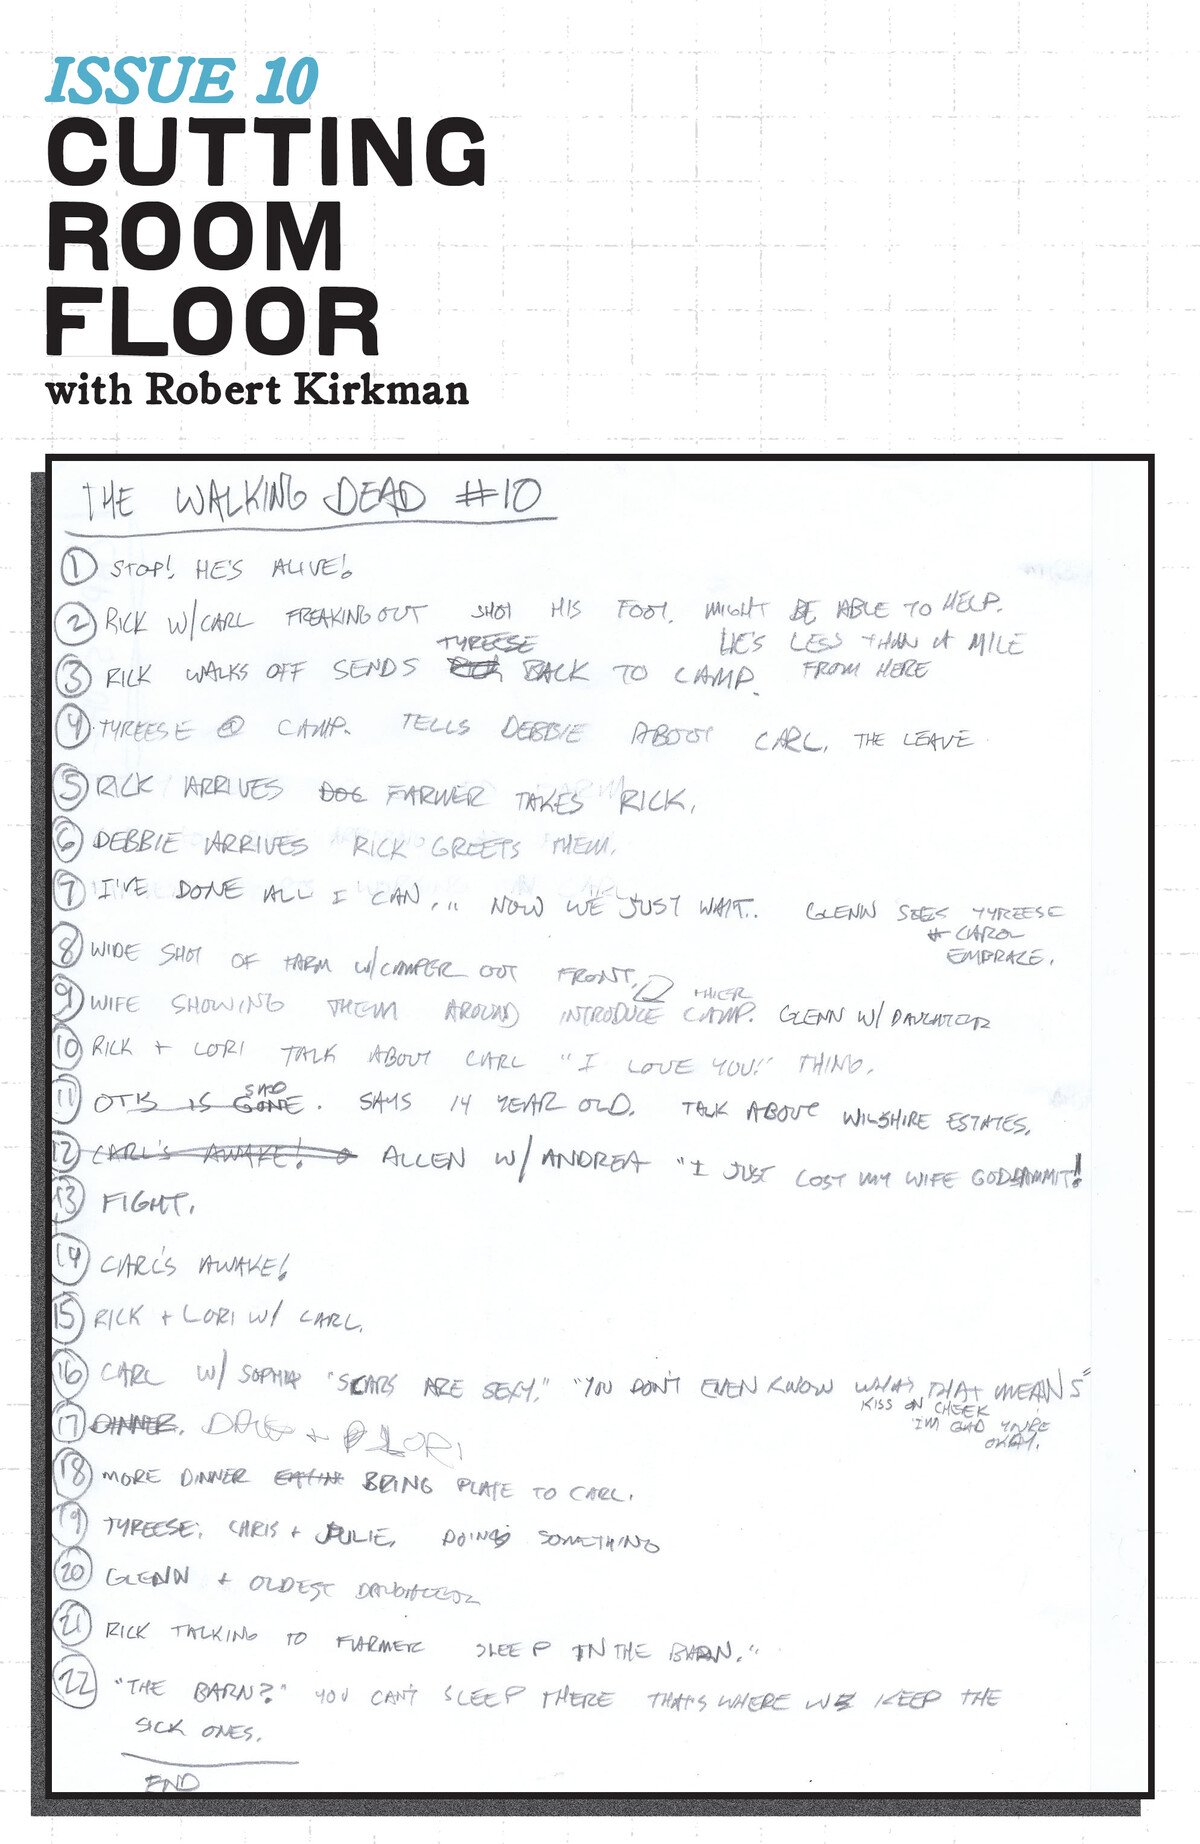 ISSUE 10
CUTTING
ROOM
FLOOR
with Robert Kirkman
THE WALKING DEAD #10
1 STOP! HE'S ALIVE!
2 RICK W/CARL FREAKING OUT SHOT HIS FOOT. MIGHT BE ABLE TO HELP.
HE'S LESS THAN A MILE
FROM HERE
TYREESE
3 RICK WALKS OFF SENDS BACK TO CAMP.
4 TYREESE @ CAMP. TELLS DEBBIE ABOUT CARL. THE LEAVE
5 RICK ARRIVES DOC FARMER TAKES RICK.
6 DEBBIE ARRIVES RICK GREETS THEM.
7 I'VE DONE ALL I CAN... NOW WE JUST WAIT.. GLENN SEES TYREESE
+ CAROL
EMBRACE.
8 WIDE SHOT OF FARM W/CAMPER OUT FRONT.
9 WIFE SHOWING THEM AROUND INTRODUCE CAMP. GLENN W/ DAUGHTER
10 RICK + LORI TALK ABOUT CARL "I LOVE YOU!" THING.
SAD
11 OTIS IS GONE. SAYS 14 YEAR OLD. TALK ABOUT WILSHIRE ESTATES.
12 CARL'S AWAKE! ALLEN W/ ANDREA "I JUST LOST MY WIFE GODDAMMIT!
13 FIGHT.
14 CARL'S AWAKE!
15 RICK + LORI W/ CARL.
16 CARL W/ SOPHIA "SCARS ARE SEXY." "YOU DON'T EVEN KNOW WHAT THAT MEANS"
KISS ON CHEEK
I'M GAD YOU'RE
OKAY.
17 DINNER. + LORI
18 MORE DINNER BRING PLATE TO CARL.
19 TYREESE, CHRIS + JULIE. DOING SOMETHING
20 GLENN + OLDEST DAUGHTER
21 RICK TALKING TO FARMER SLEEP IN THE BARN."
22 "THE BARN?" YOU CAN'T SLEEP THERE THAT'S WHERE WE KEEP THE
SICK ONES.
END